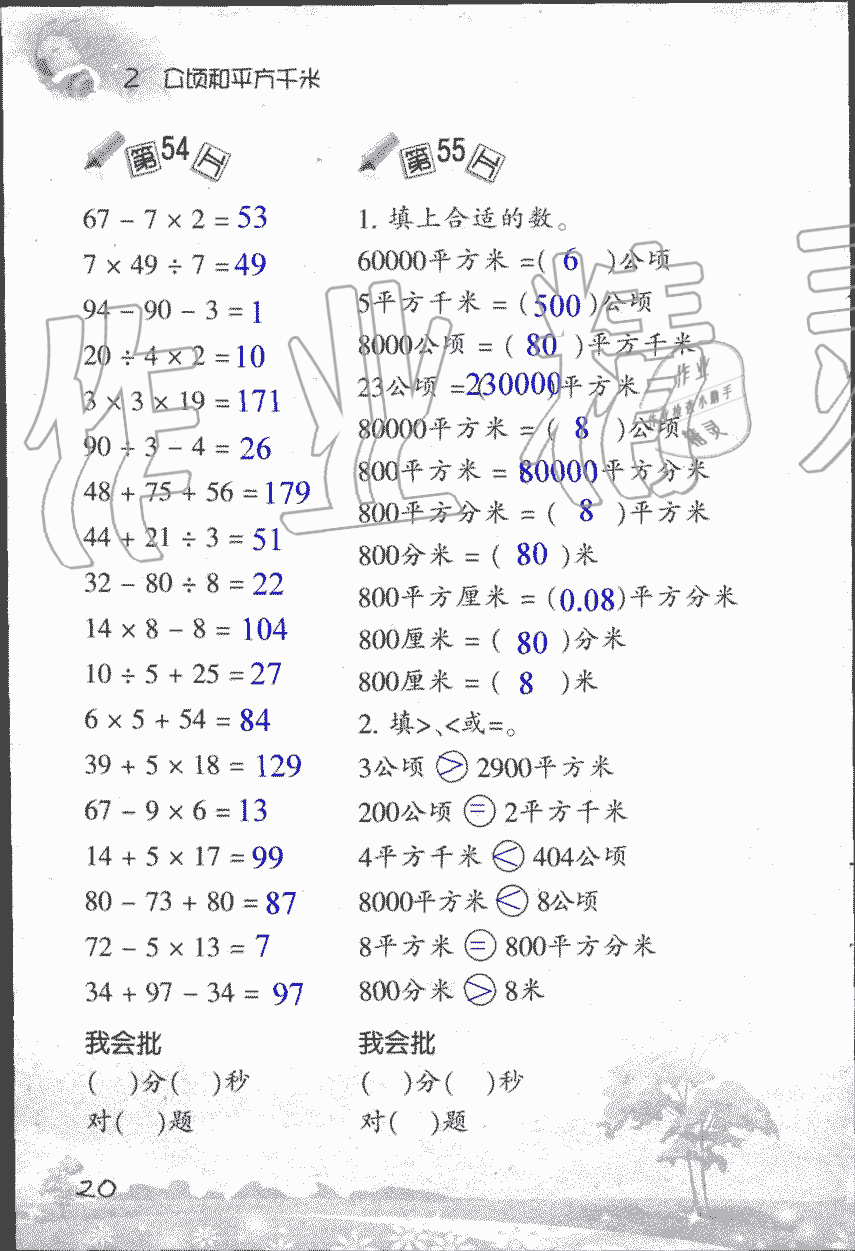 2 公顷和平方千米
第54工
67 − 7 × 2 = 53
7 × 49 ÷ 7 = 49
94 − 90 − 3 = 1
20 ÷ 4 × 2 = 10
3 × 3 × 19 = 171
90 ÷ 3 − 4 = 26
48 + 75 + 56 = 179
44 + 21 ÷ 3 = 51
32 − 80 ÷ 8 = 22
14 × 8 − 8 = 104
10 ÷ 5 + 25 = 27
6 × 5 + 54 = 84
39 + 5 × 18 = 129
67 − 9 × 6 = 13
14 + 5 × 17 = 99
80 − 73 + 80 = 87
72 − 5 × 13 = 7
34 + 97 − 34 = 97
我会批
( )分( )秒
对( )题
第55工
1. 填上合适的数。
60000平方米 =( 6 )公顷
5平方千米 = ( 500 )公顷
8000公顷 = ( 80 )平方千米
23公顷 =(230000)平方米
80000平方米 = ( 8 )公顷
800平方米 = 80000平方分米
800平方分米 = ( 8 )平方米
800分米 = ( 80 )米
800平方厘米 = (0.08)平方分米
800厘米 = ( 80 )分米
800厘米 = ( 8 )米
2. 填>、<或=。
3公顷 > 2900平方米
200公顷 = 2平方千米
4平方千米 < 404公顷
8000平方米 < 8公顷
8平方米 = 800平方分米
800分米 > 8米
我会批
( )分( )秒
对( )题
20
作业精灵
作业
精灵